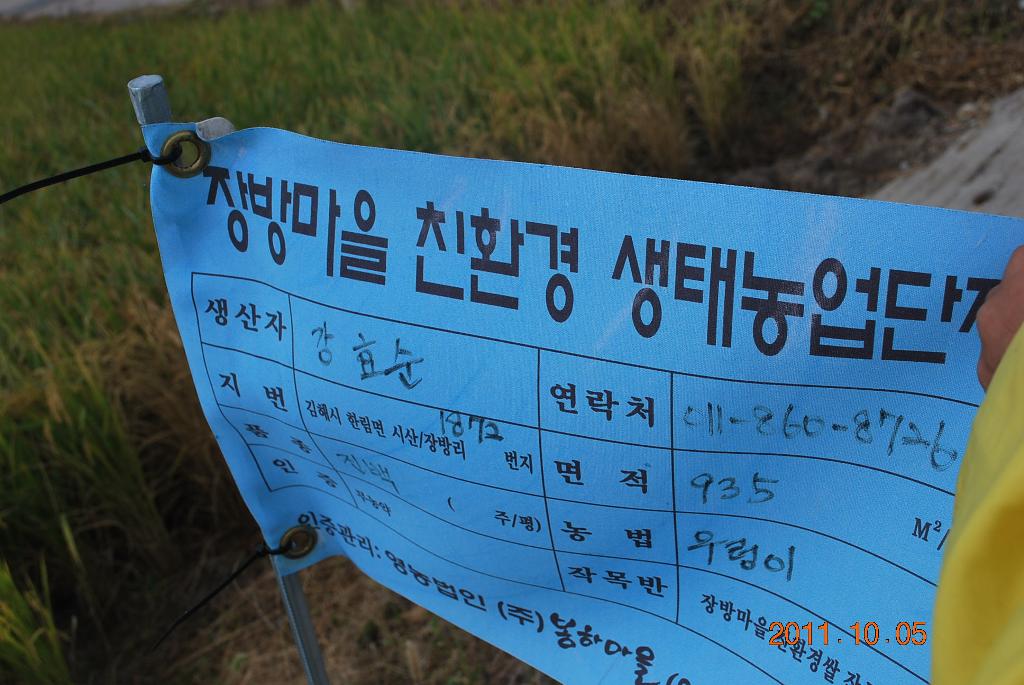 장방마을 친환경 생태농업단지
생산자 강효순 연락처 011-860-8726
지 번 김해시 한림면 시산/장방리 1872 번지 면 적 935 M²/
품 종 ( 주/평) 농 법 우렁이
인 증 무농약 작목반 장방마을 친환경쌀 작
인증관리: 영농법인 (주)봉하마을 (
2011.10.05